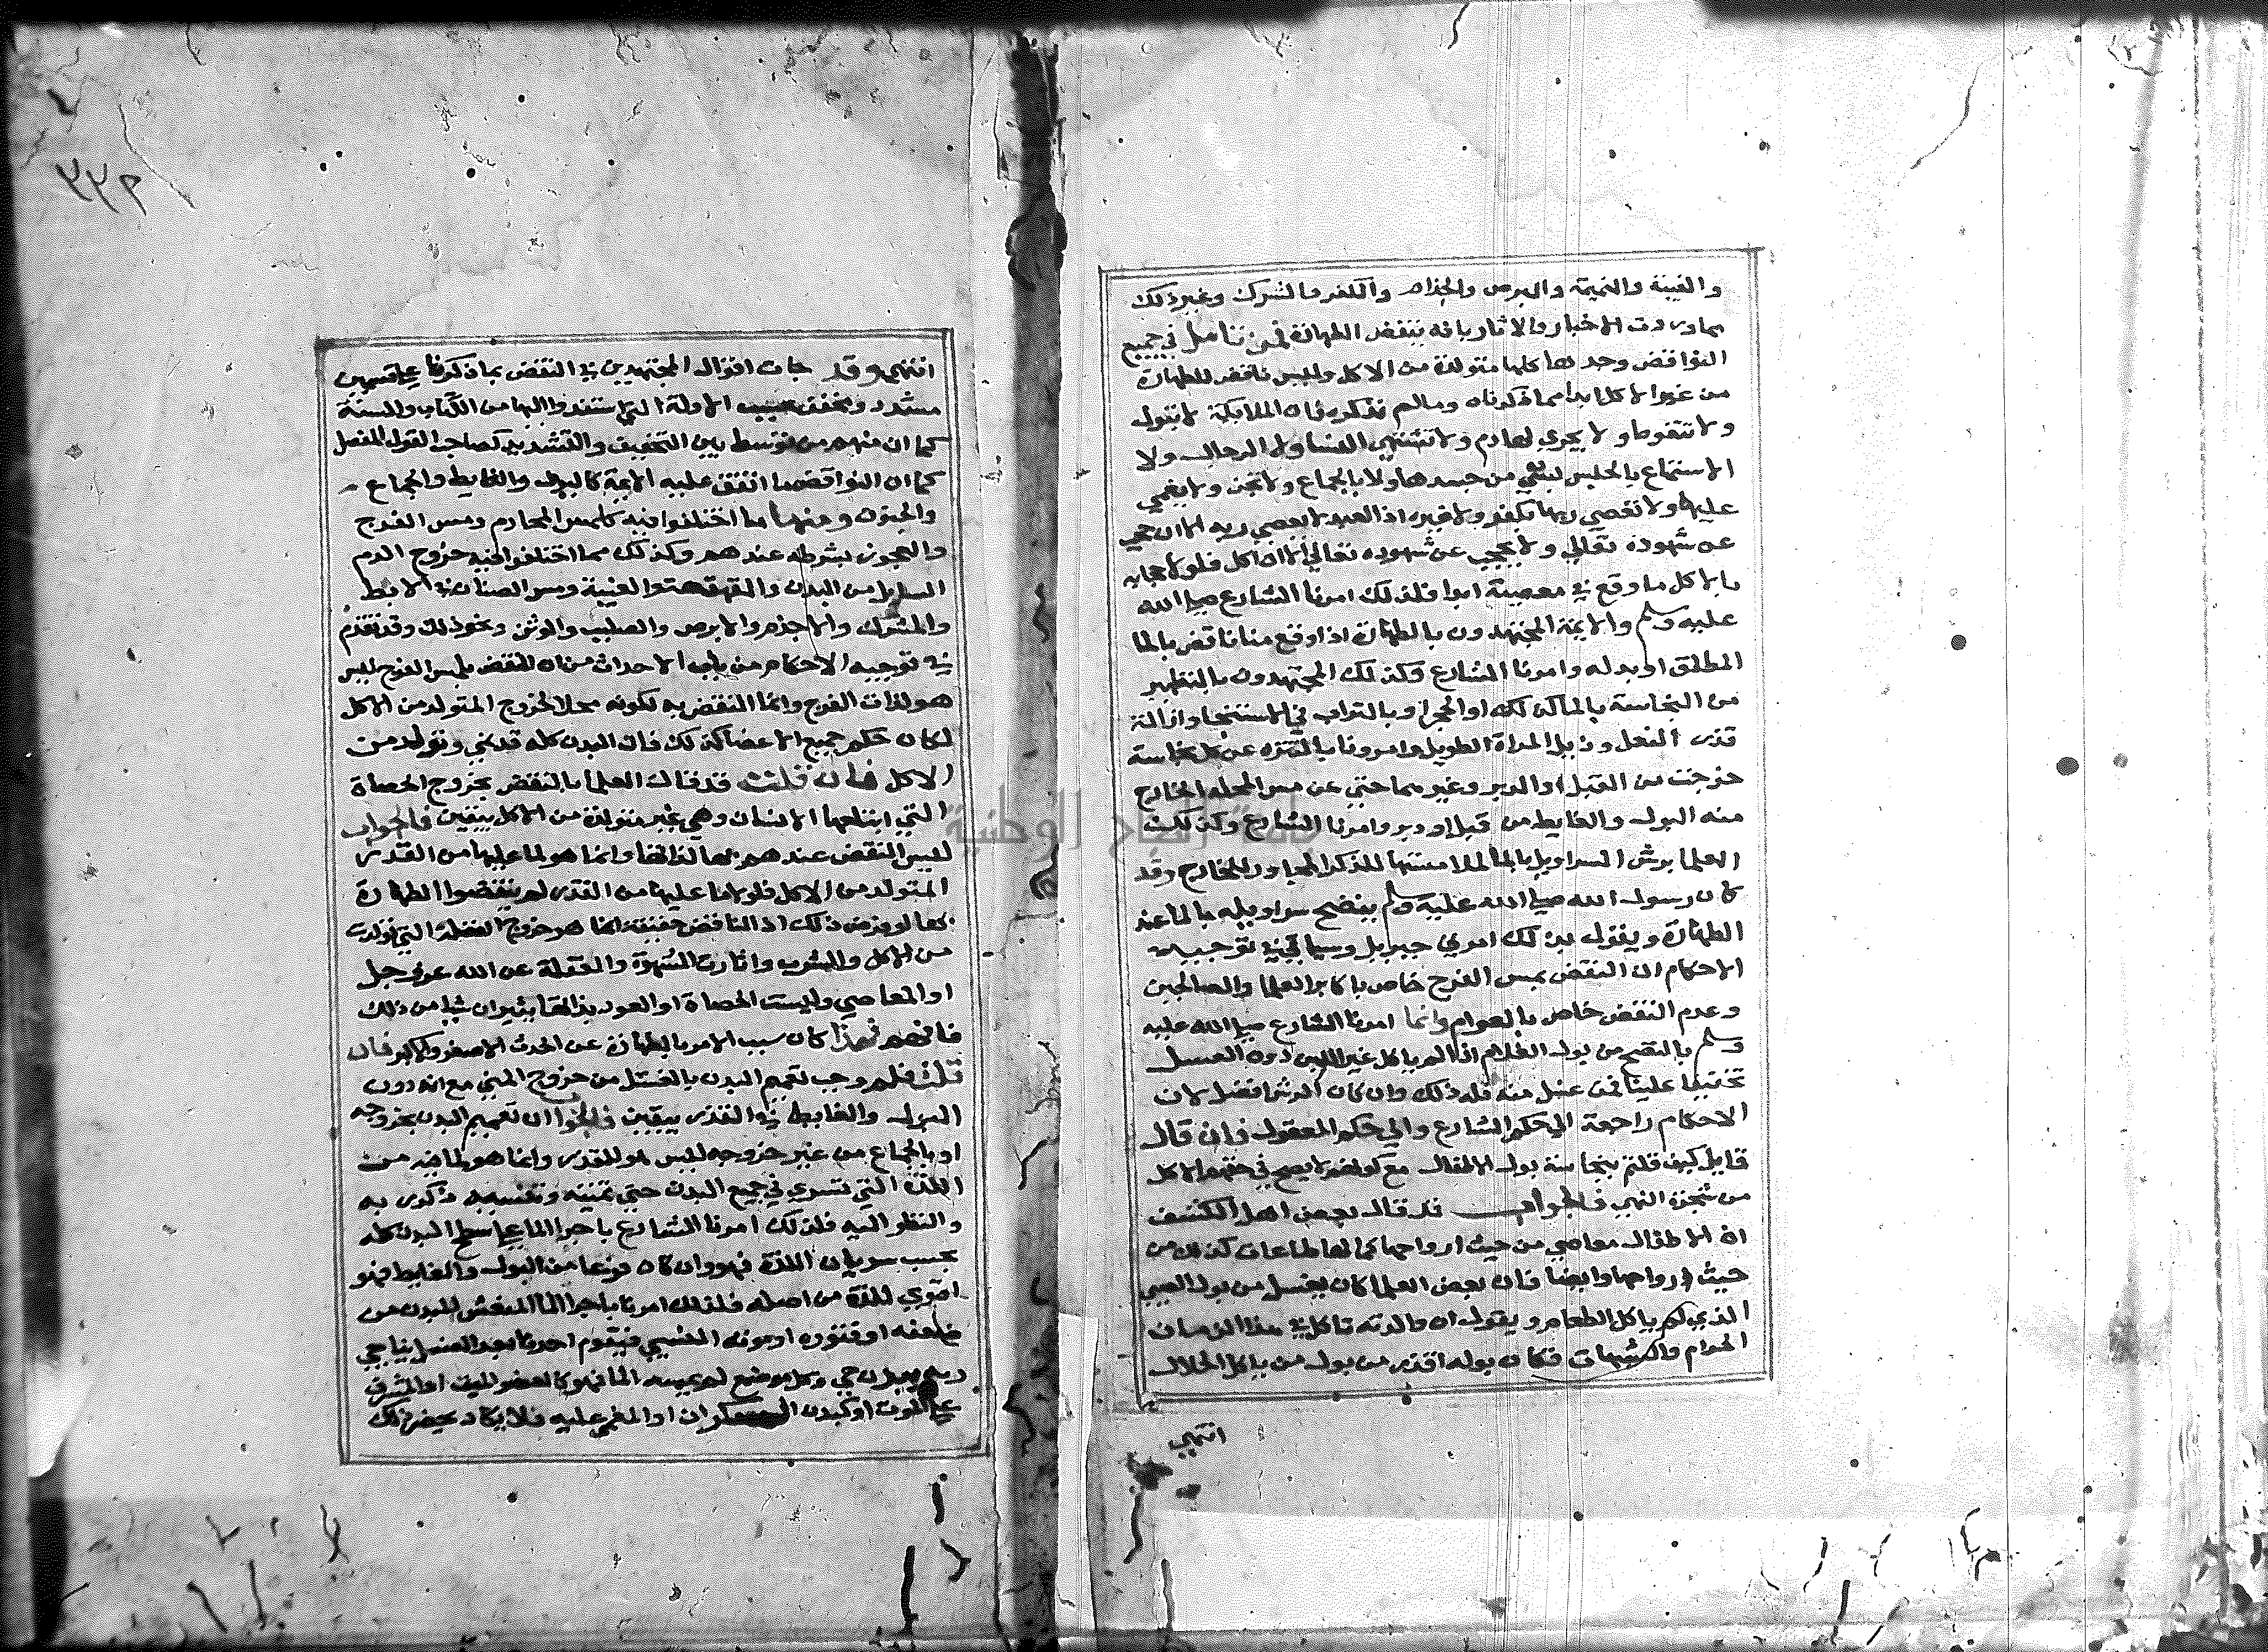 والغيبة والنميمة والبرص والجذام والكفر والشرك وغير ذلك
مما وردت الاخبار والاثار بانه ينقض الطهارة فمن تامل في جميع
النواقض وجدها كلها متولدة من الاكل وليس ناقض للطهارة
من غير الاكل ابدا مما ذكرناه ومالم نذكره فان الملايكة لا تبول
ولا تتغوط ولا يجري لها دم ولا تشتهي النسا ولا الرجال ولا
الاستمتاع بالجلوس لشي من جسدها ولا بالجماع ولا تجن ولا يغمي
عليها ولا تعصي ربها بكفر ولا غيره اذ العبد لا يعصي ربه الا ان حجب
عن شهوده تعالي ولا يحجب عن شهوده تعالي الا ان اكل فلولا حجابه
بالاكل ما وقع في معصية ابدا فلذلك امرنا الشارع صلي الله
عليه وسلم والايمة المجتهدون بالطهارة اذا وقع منا ناقض بالما
المطلق او بدله وامرنا الشارع وكذلك المجتهدون بالتطهير
من النجاسة بالما كذلك او الحجر او بالتراب في الاستنجا وازالة
قذر النعل وذيل المراة الطويل وامرونا بالتنزه عن كل نجاسة
خرجت من القبل او الدبر وغيرهما حتي عن مس المحل الخارج
منه البول والغايط من قبل او دبر وامرنا الشارع وكذلك
العلما برش السراويل بالما لملامستها للذكر المجاور للخارج وقد
كان رسول الله صلي الله عليه وسلم ينضح سراويله بالما عند
الطهارة ويقول بذلك امرني جبريل وسياتي في توجيه
الاحكام ان النقض بمس الفرج خاص باكابر العلما والصالحين
وعدم النقض خاص بالعوام وانما امرنا الشارع صلي الله عليه
وسلم بالنضح من بول الغلام اذا لم ياكل غير اللبن دون الغسل
تخفيفا علينا فمن غسل منه فله ذلك وان كان الرش افضل لان
الاحكام راجعة الي حكم الشارع والي حكم المعقول فان قال
قايل كيف قلتم بنجاسة بول الاطفال مع كونهم لا يصح في حقهم الاكل
من شجرة النهي فالجواب قد قال بعض اهل الكشف
ان الاطفال معاصي من حيث ارواحها كما لها طاعات كذلك من
حيث ارواحها وايضا فان بعض العلما كان يغسل من بول الصبي
الذي لم ياكل الطعام ويقول ان والدته تاكل في هذا الزمان
الحرام والشبهات فكان بوله اقذر من بول من ياكل الحلال
انتهي
٣٣٢
انتهي وقد جات اقوال المجتهدين في النقض بما ذكرنا علي قسمين
مشدد ومخفف بحسب الادلة التي استندوا اليها من الكتاب والسنة
كما ان منهم من توسط بين التخفيف والتشديد كصاحب القول المفصل
كما ان النواقض ما اتفق عليه الايمة كالبول والغايط والجماع
والجنون ومنها ما اختلفوا فيه كلمس المحارم ومس الفرج
والعجوز بشرطه عندهم وكذلك مما اختلفوا فيه خروج الدم
السايل من البدن والقهقهة والغيبة ومس الصنان في الابط
والمشرك والاجذم والابرص والصليب والوثن ونحو ذلك وقد تقدم
في توجيه الاحكام من باب الاحداث من ان النقض بلمس الفرج ليس
هو لذات الفرج وانما النقض به لكونه محلا لخروج المتولد من الاكل
لكان حكم جميع الاعضا كذلك فان البدن كله قد بني وتولد من
الاكل فان قلت قد قال العلما بالنقض بخروج الحصاة
التي ابتلعها الانسان وهي غير متولدة من الاكل بيقين فالجواب
ليس النقض عندهم بها لذاتها وانما هو لما عليها من القذر
المتولد من الاكل فلولا ما عليها من القذر لم ينقضوا الطهارة
بها لو فرض ذلك اذ الناقض حقيقة انما هو خروج الفضلة التي تولدت
من الاكل والشرب واثارت الشهوة والغفلة عن الله عز وجل
او المعاصي وليست الحصاة او العود بذاتها يثيران شيا من ذلك
فافهم فهذا كان سبب الامر بالطهارة عن الحدث الاصغر والاكبر فان
قلت فلم وجب تعميم البدن بالغسل من خروج المني مع انه دون
البول والغايط في القذر بيقين فالجواب ان تعميم البدن بخروجه
او بالجماع من غير خروجه ليس هو للقذر وانما هو لما فيه من
اللذة التي تسري في جميع البدن حتي تميته وتنسيه ذكر ربه
والنظر اليه فلذلك امرنا الشارع باجرا الما علي سطح البدن كله
بحسب سريان اللذة فهو وان كان فرعا من البول والغايط فهو
اقوي لذة من اصله فلذلك امرنا باجرا الما المنعش للبدن من
ضعفه او فتوره او موته النفسي فيقوم احدنا بعد الغسل يناجي
ربه ببدن حي وكل موضع لم يمسه الما فهو كالعضو الميت او المشرف
علي الموت او كبدن السكران او المغمي عليه فلا يكاد يحضر ذلك